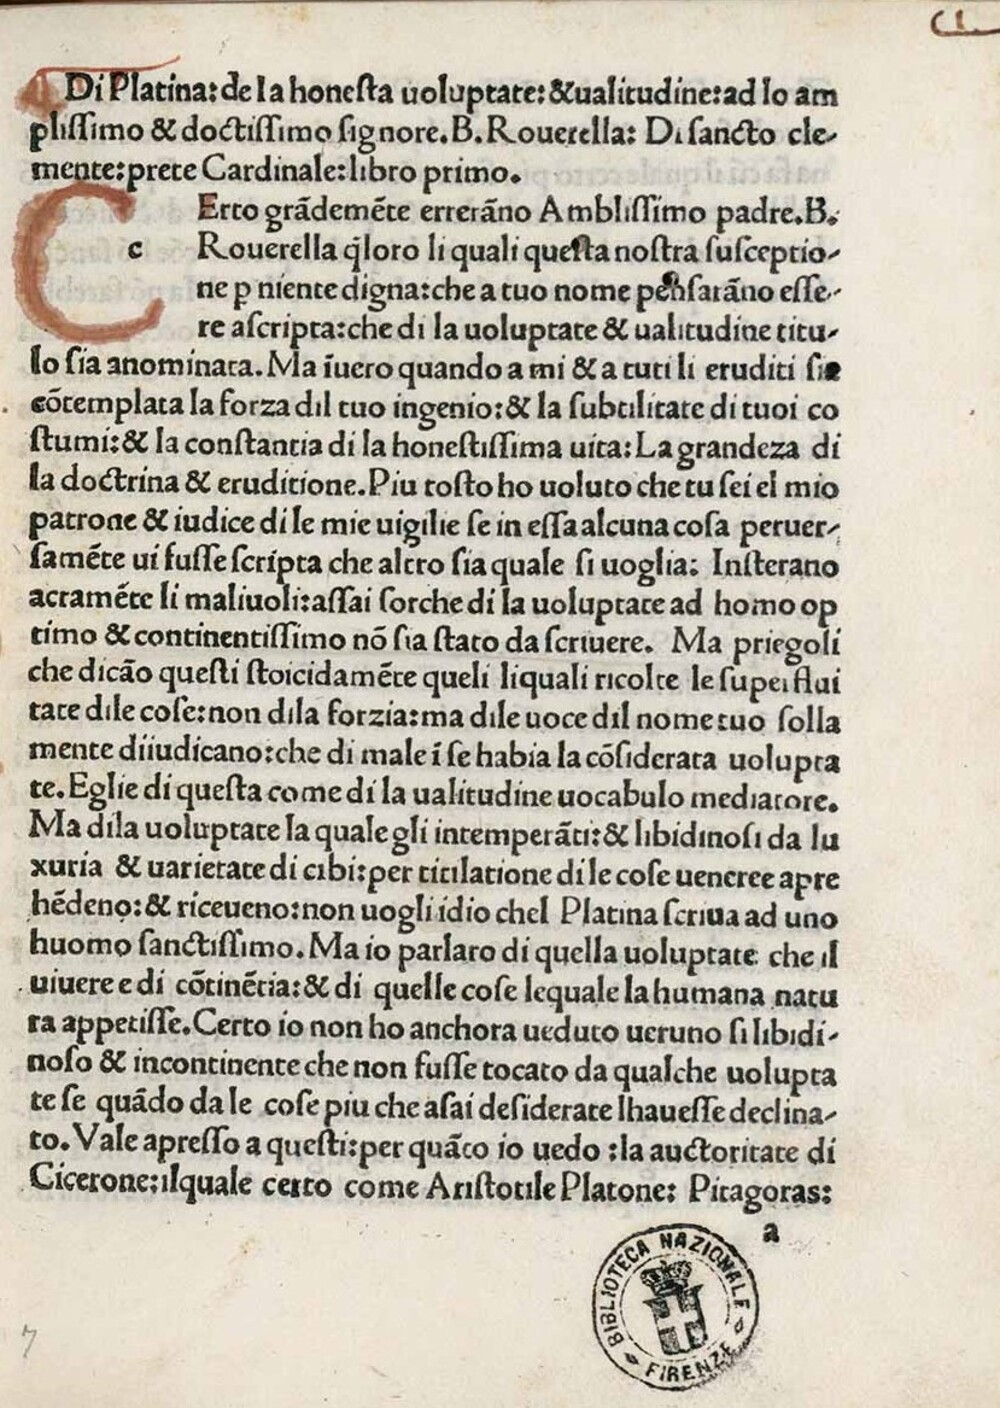 C1.
Di Platina: de la honesta uoluptate: & ualitudine: ad lo am
plissimo & doctissimo signore. B. Rouerella: Di sancto cle-
mente: prete Cardinale: libro primo.
C Erto grãdemẽte errerãno Amblissimo padre. B.
c Rouerella q̃loro li quali questa nostra susceptio-
ne ꝑ niente digna: che a tuo nome pensarãno esse-
re ascripta: che di la uoluptate & ualitudine titu-
lo sia anominata. Ma ĩuero quando a mi & a tuti li eruditi sie
cõtemplata la forza dil tuo ingenio: & la subtilitate di tuoi co
stumi: & la constantia di la honestissima uita: La grandeza di
la doctrina & eruditione. Piu tosto ho uoluto che tu sei el mio
patrone & iudice di le mie uigilie se in essa alcuna cosa peruer-
samẽte ui fusse scripta che altro sia quale si uoglia: Insterano
acramẽte li maliuoli: assai forche di la uoluptate ad homo op
timo & continentissimo nõ sia stato da scriuere. Ma priegoli
che dicão questi stoicidamẽte queli liquali ricolte le superflui
tate dile cose: non dila forzia: ma dile uoce dil nome tuo solla
mente diiudicano: che di male ĩ se habia la cõsiderata uolupta
te. Eglie di questa come di la ualitudine uocabulo mediatore.
Ma dila uoluptate la quale gli intemperãti: & libidinosi da lu
xuria & uarietate di cibi: per titilatione di le cose ueneree apre
hẽdeno: & riceueno: non uogli idio chel Platina scriua ad uno
huomo sanctissimo. Ma io parlaro di quella uoluptate che il
uiuere e di cõtinẽtia: & di quelle cose lequale la humana natu
ra appetisse. Certo io non ho anchora ueduto ueruno si libidi-
noso & incontinente che non fusse tocato da qualche uolupta
te se quãdo da le cose piu che asai desiderate lhauesse declina-
to. Vale apresso a questi: per quãto io uedo : la auctoritate di
Cicerone: ilquale certo come Aristotile Platone: Pitagoras:
a
BIBLIOTECA NAZIONALE
FIRENZE
7